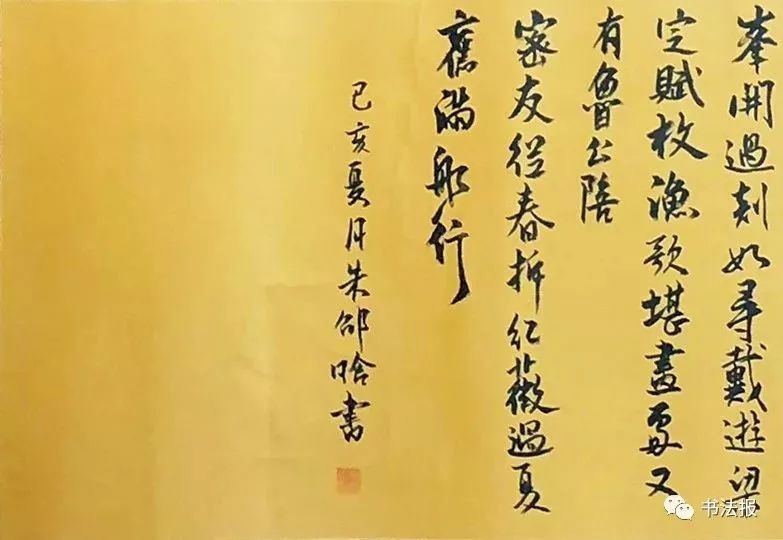 峯開過剡如尋戴遊梁
定賦枚漁歌堪畫處又
有魯公陪
密友從春拆紅薇過夏
舊滿船行
己亥夏月朱晗書
书法报